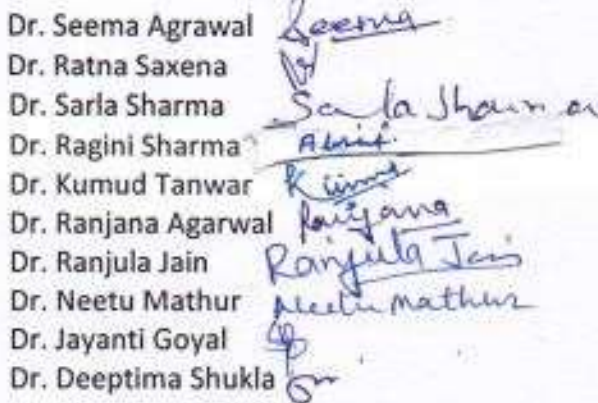 Dr. Seema Agrawal Seema
Dr. Ratna Saxena
Dr. Sarla Sharma Sarla Sharma
Dr. Ragini Sharma Absent.
Dr. Kumud Tanwar Kumud
Dr. Ranjana Agarwal Ranjana
Dr. Ranjula Jain Ranjula Jain
Dr. Neetu Mathur Neetu Mathur
Dr. Jayanti Goyal
Dr. Deeptima Shukla